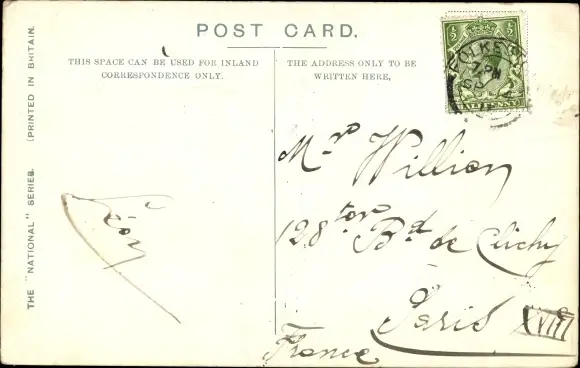 POST CARD.
THIS SPACE CAN BE USED FOR INLAND
CORRESPONDENCE ONLY.
THE ADDRESS ONLY TO BE
WRITTEN HERE,
THE "NATIONAL" SERIES. (PRINTED IN BRITAIN.
Mr Willion
128 ter Bd de Clichy
Paris XVIII
France